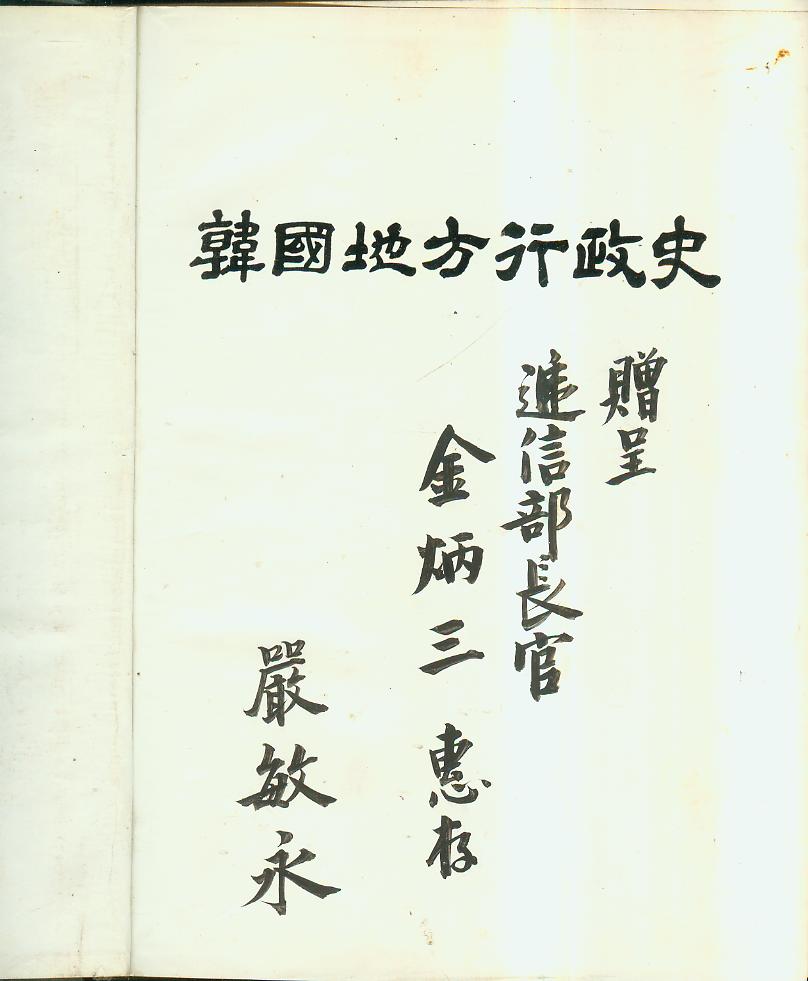 韓國地方行政史
贈呈
遞信部長官
金炳三 惠存
嚴敏永